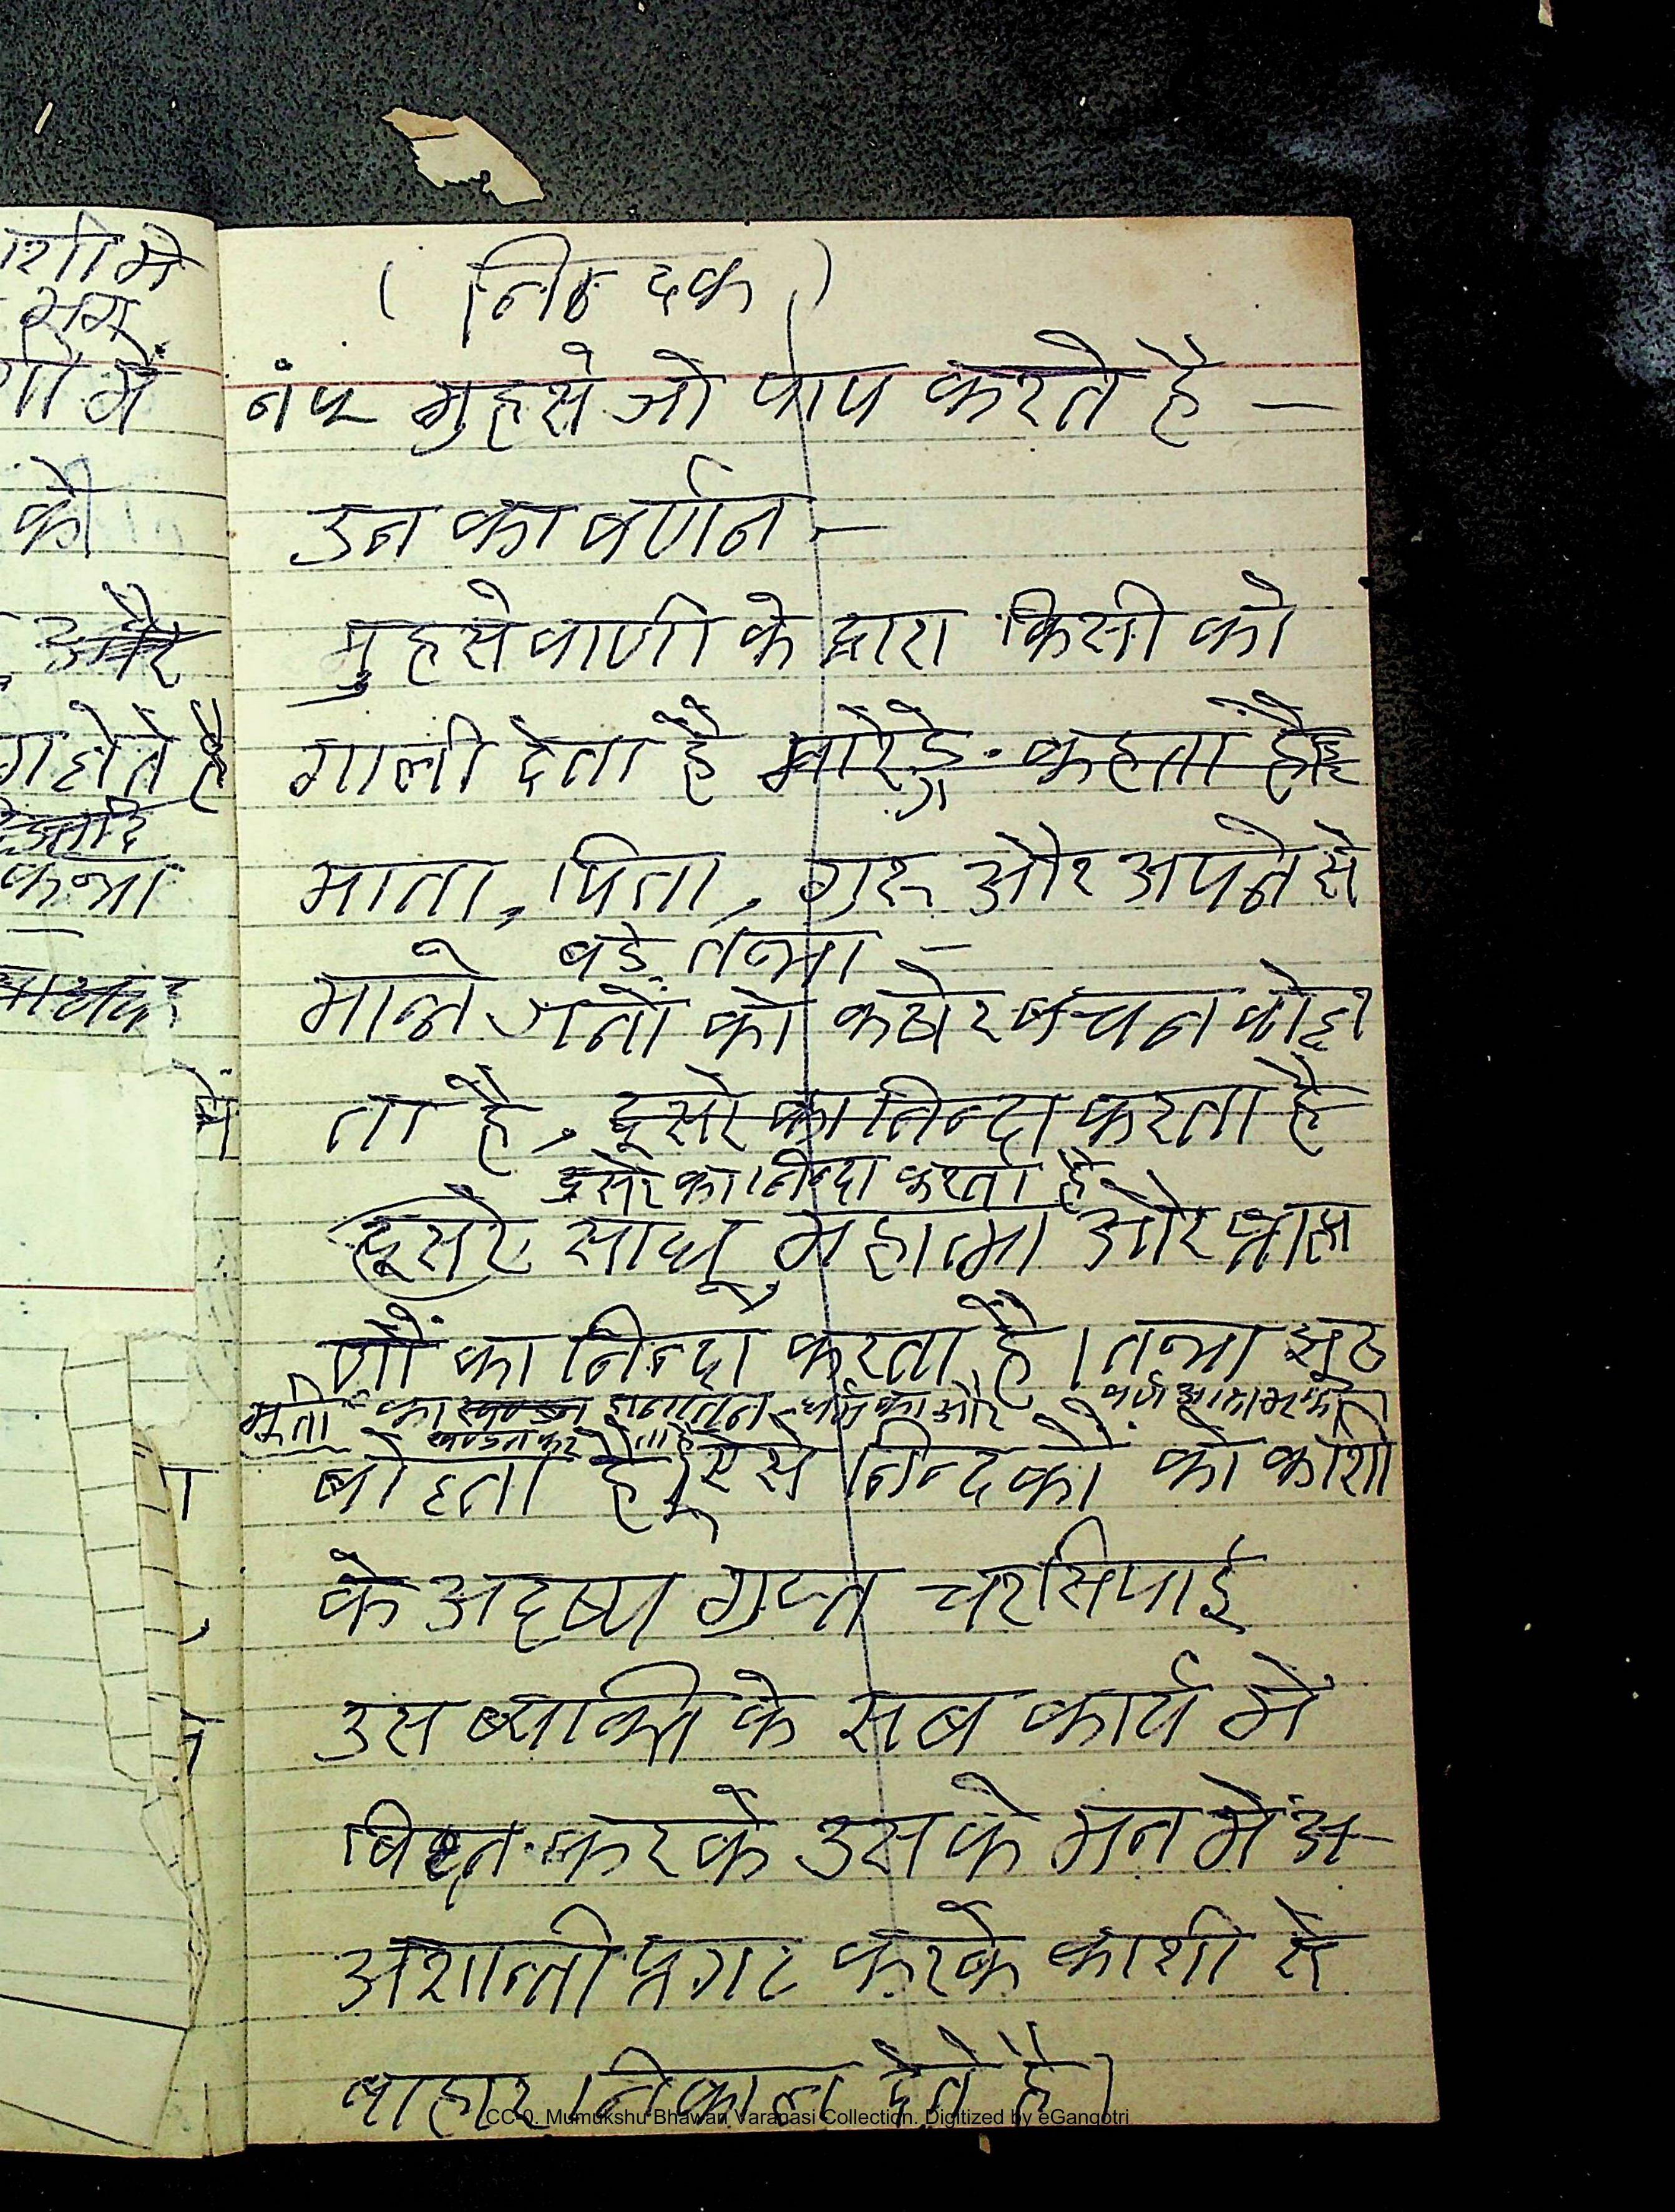 ( निन्दक )
नं ५ मुहसे जो पाप करते है —
उन का बर्णन —
मुहसे वाणी के द्वारा किसी को
गाली देता है कहता है
माता, पिता, गुरू और अपने से
बडे तथा —
मान्ने जनों को कठोर बचन बोल
ता है, दूसरे का निन्दा करता है
दूसरे का निन्दा करता है
दूसरे साधू महात्मा और ब्राह्म
णों का निन्दा करता है । तथा झूठ
मूर्ती का खण्डन सनातन धर्म का और
खण्डन कर ता है
बोलता है। ऐसे निन्दकों को काशी
के अदृष्य गुप्त चर सिपाई
उस ब्यक्ति के सब कार्य में
बिघ्न करके उस के मन में अ-
अशान्ती प्रगट करके काशी से
बाहार निकाल देते है।
CC-0. Mumukshu Bhawan Varanasi Collection. Digitized by eGangotri